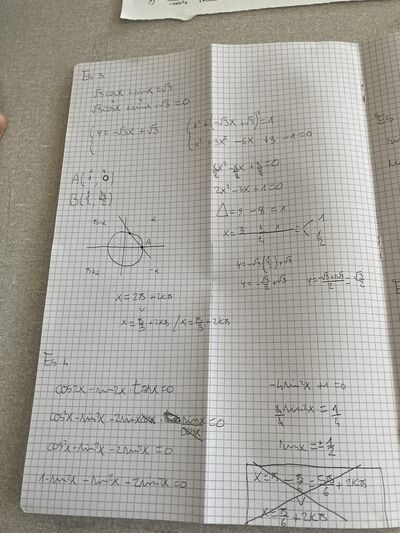 Es 3
√3cosx + sinx = √3
√3cosx + sinx - √3 = 0
{y = -√3x + √3
{x² + (-√3x + √3)² = 1
{x² + 3x² - 6x + 3 - 1 = 0
2x² - 3x + 1 = 0
Δ = 9 - 8 = 1
x = 3 ± 1 / 4 = < 1
1/2
y = -√3(1/2) + √3
y = -√3/2 + √3
A(1, 0)
B(1/2, √3/2)
π-α
α
A
π+α
-α
x = 2π + 2kπ
∨
Es 4
cos2x - sin2x · tanx = 0
cos²x - sin²x - 2sinxcosx · sinx/cosx = 0
cos²x - sin²x - 2sin²x = 0
1 - sin²x - sin²x - 2sin²x = 0
-4sin²x + 1 = 0
4/4 sin²x = 1/4
sinx = ± 1/2
x = π - π/6 = 5π/6 + 2kπ
∨
x = π/6 + 2kπ